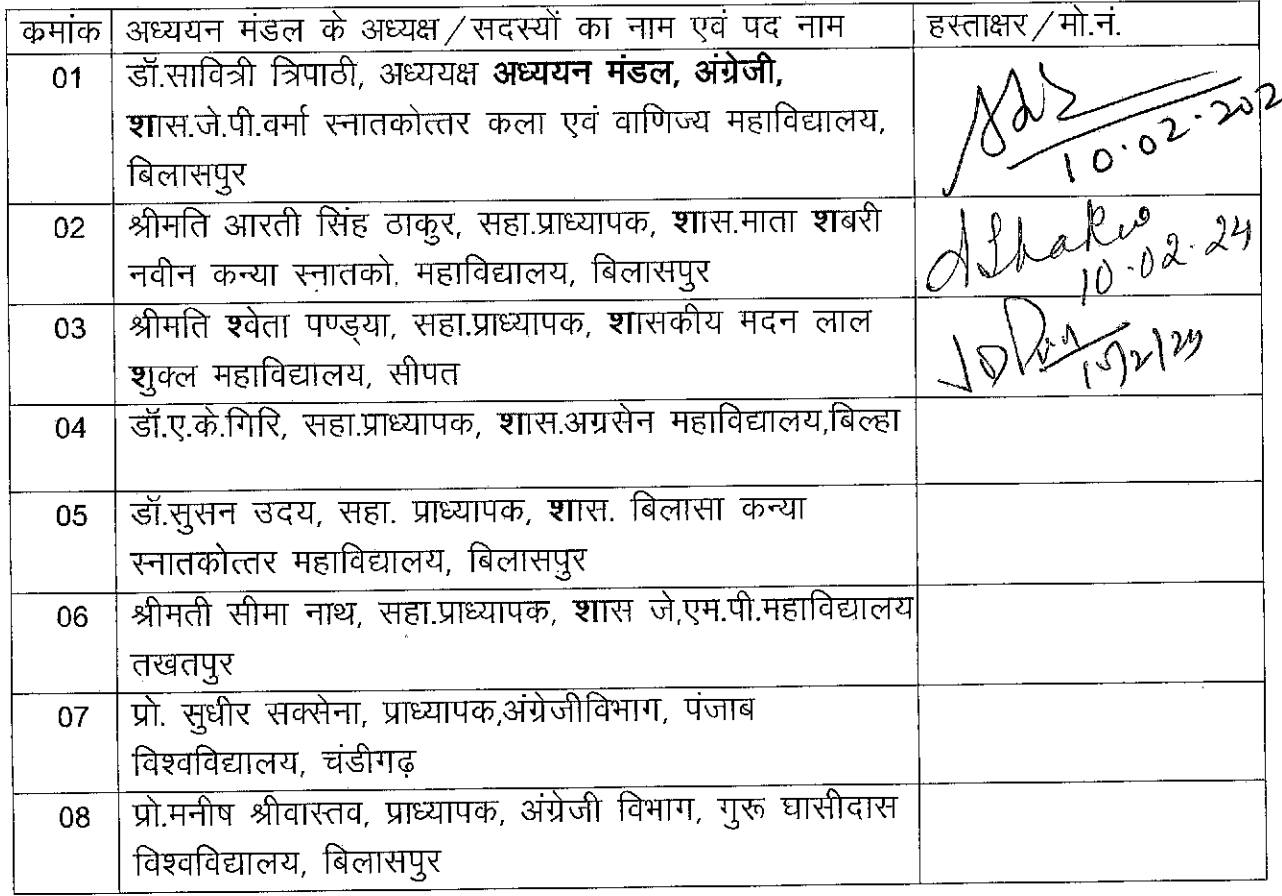 कमांक अध्ययन मंडल के अध्यक्ष / सदस्यों का नाम एवं पद नाम हस्ताक्षर / मो.नं.
01 डॉ.सावित्री त्रिपाठी, अध्ययक्ष अध्ययन मंडल, अंग्रेजी,
शास.जे.पी.वर्मा स्नातकोत्तर कला एवं वाणिज्य महाविद्यालय,
बिलासपुर
10.02.202
02 श्रीमति आरती सिंह ठाकुर, सहा.प्राध्यापक, शास.माता शबरी
नवीन कन्या स्नातको. महाविद्यालय, बिलासपुर
10.02.24
03 श्रीमति श्वेता पण्ड्या, सहा.प्राध्यापक, शासकीय मदन लाल
शुक्ल महाविद्यालय, सीपत
04 डॉ.ए.के.गिरि, सहा.प्राध्यापक, शास.अग्रसेन महाविद्यालय,बिल्हा
05 डॉ.सुसन उदय, सहा. प्राध्यापक, शास. बिलासा कन्या
स्नातकोत्तर महाविद्यालय, बिलासपुर
06 श्रीमती सीमा नाथ, सहा.प्राध्यापक, शास जे,एम.पी.महाविद्यालय
तखतपुर
07 प्रो. सुधीर सक्सेना, प्राध्यापक,अंग्रेजीविभाग, पंजाब
विश्वविद्यालय, चंडीगढ़
08 प्रो.मनीष श्रीवास्तव, प्राध्यापक, अंग्रेजी विभाग, गुरू घासीदास
विश्वविद्यालय, बिलासपुर